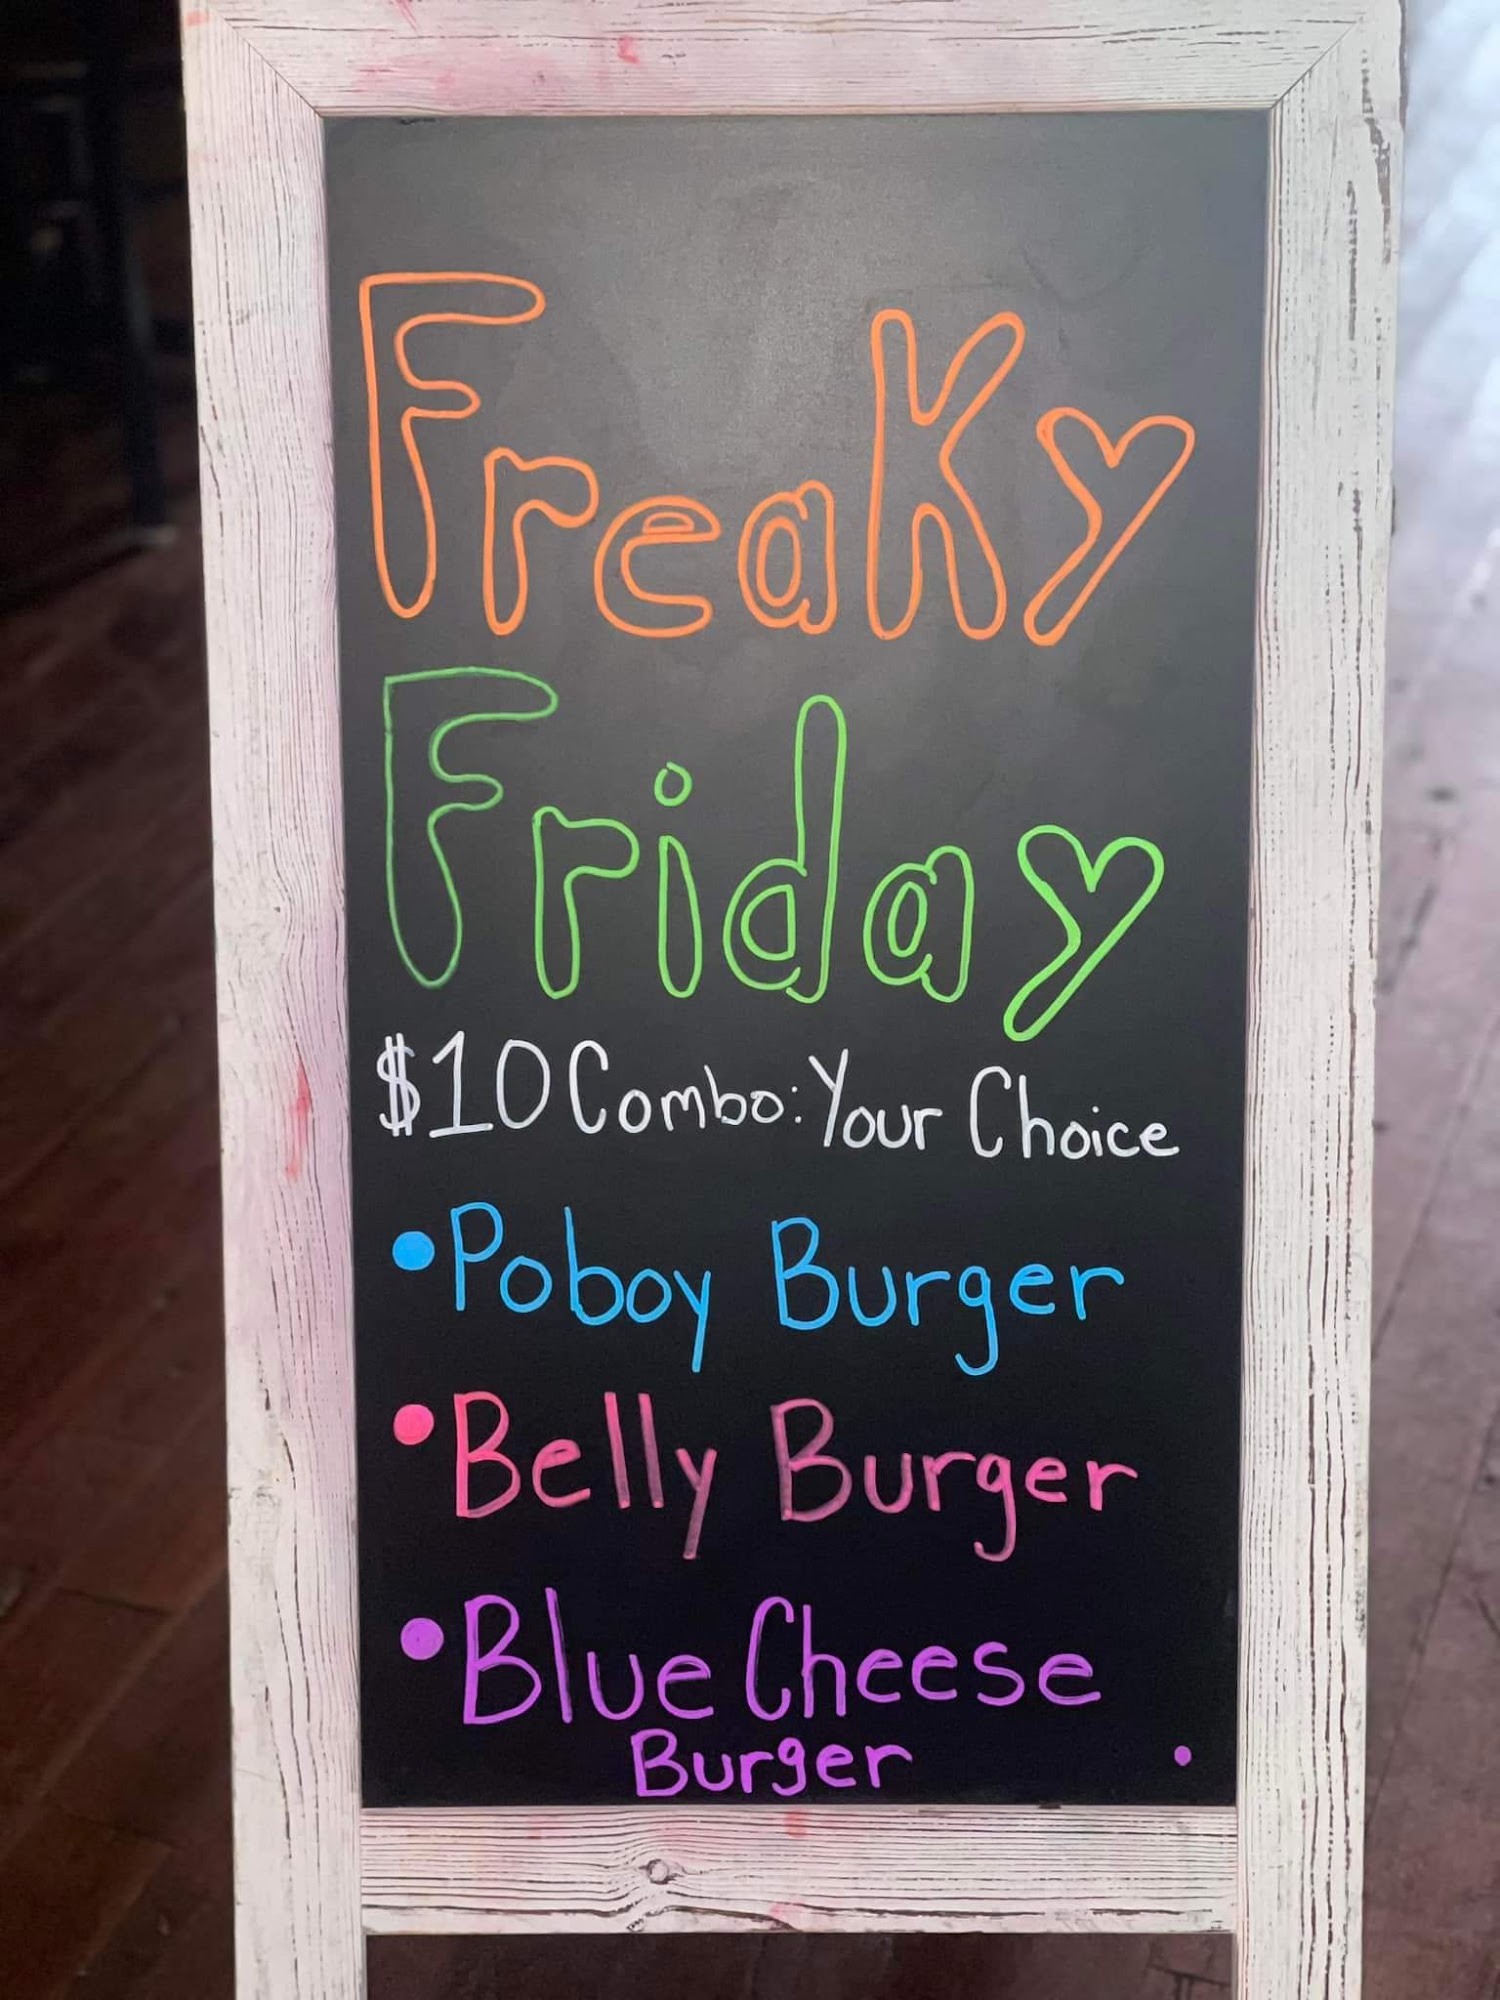 Freaky
Friday
$10 Combo: Your Choice
• Poboy Burger
• Belly Burger
• Blue Cheese
Burger